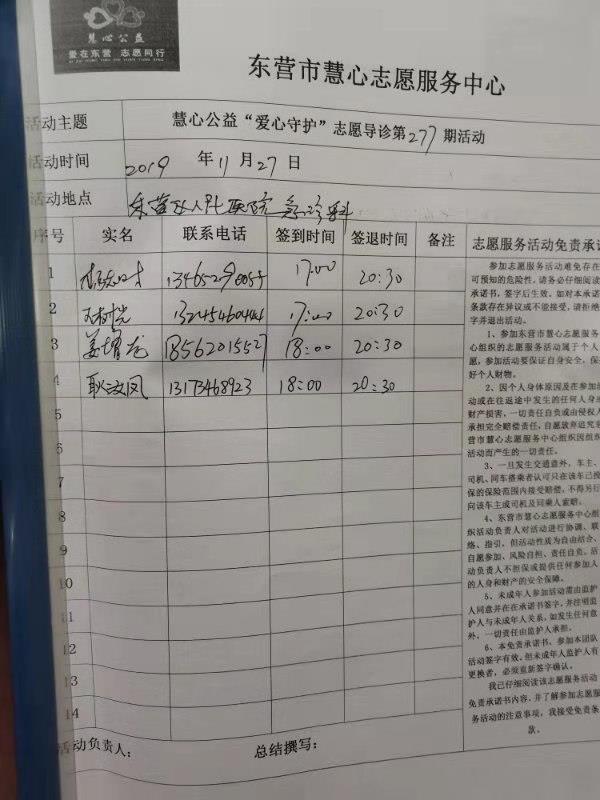 慧心公益
爱在东营 志愿同行
东营市慧心志愿服务中心
活动主题 慧心公益“爱心守护”志愿导诊第277期活动
活动时间 2019 年 11 月 27 日
活动地点 东营区人民医院急诊科
序号 实名 联系电话 签到时间 签退时间 备注 志愿服务活动免责承诺
1 17:00 20:30
2 17:00 20:30
3 姜增龙 18562015527 18:00 20:30
4 耿汝凤 13173468923 18:00 20:30
5
6
7
8
9
10
11
12
13
14
参加志愿服务活动难免存在
可预知的危险性，请务必仔细阅读
承诺书，签字后生效。如对本承诺
条款存在异议或不能接受，请拒绝
字并退出活动。
1、参加东营市慧心志愿服务
心组织的志愿服务活动属于个人
愿，参加活动要保证自身安全，保
好个人财物。
2、因个人身体原因及在参加活
动或在往返途中发生的任何人身
财产损害，一切责任自负或由侵权人
承担完全赔偿责任，自愿放弃追究
营市慧心志愿服务中心组织因组织
活动而产生的一切责任。
3、一旦发生交通意外，车主、
司机、同车搭乘者认可只在该车已投
保的保险范围内接受赔偿，不得另行
向该车主或司机及同乘人索赔。
4、东营市慧心志愿服务中心组
织活动负责人对活动进行协调、联
络、指引，但活动性质为自由结合、
自愿参加、风险自担、责任自负。活
动负责人不担保或提供任何参加人
的人身和财产的安全保障。
5、未成年人参加活动需由监护
人同意并在在承诺书签字，并注明监
护人与未成年人关系，如发生任何意
外，一切责任由监护人承担。
6、本免责承诺书，参加本团队
活动签字有效。但未成年人监护人有
更换者，必须重新签字确认。
我已仔细阅读该志愿服务活动
免责承诺书内容，并了解参加志愿服
务活动的注意事项，我接受免责条
款。
活动负责人： 总结撰写：